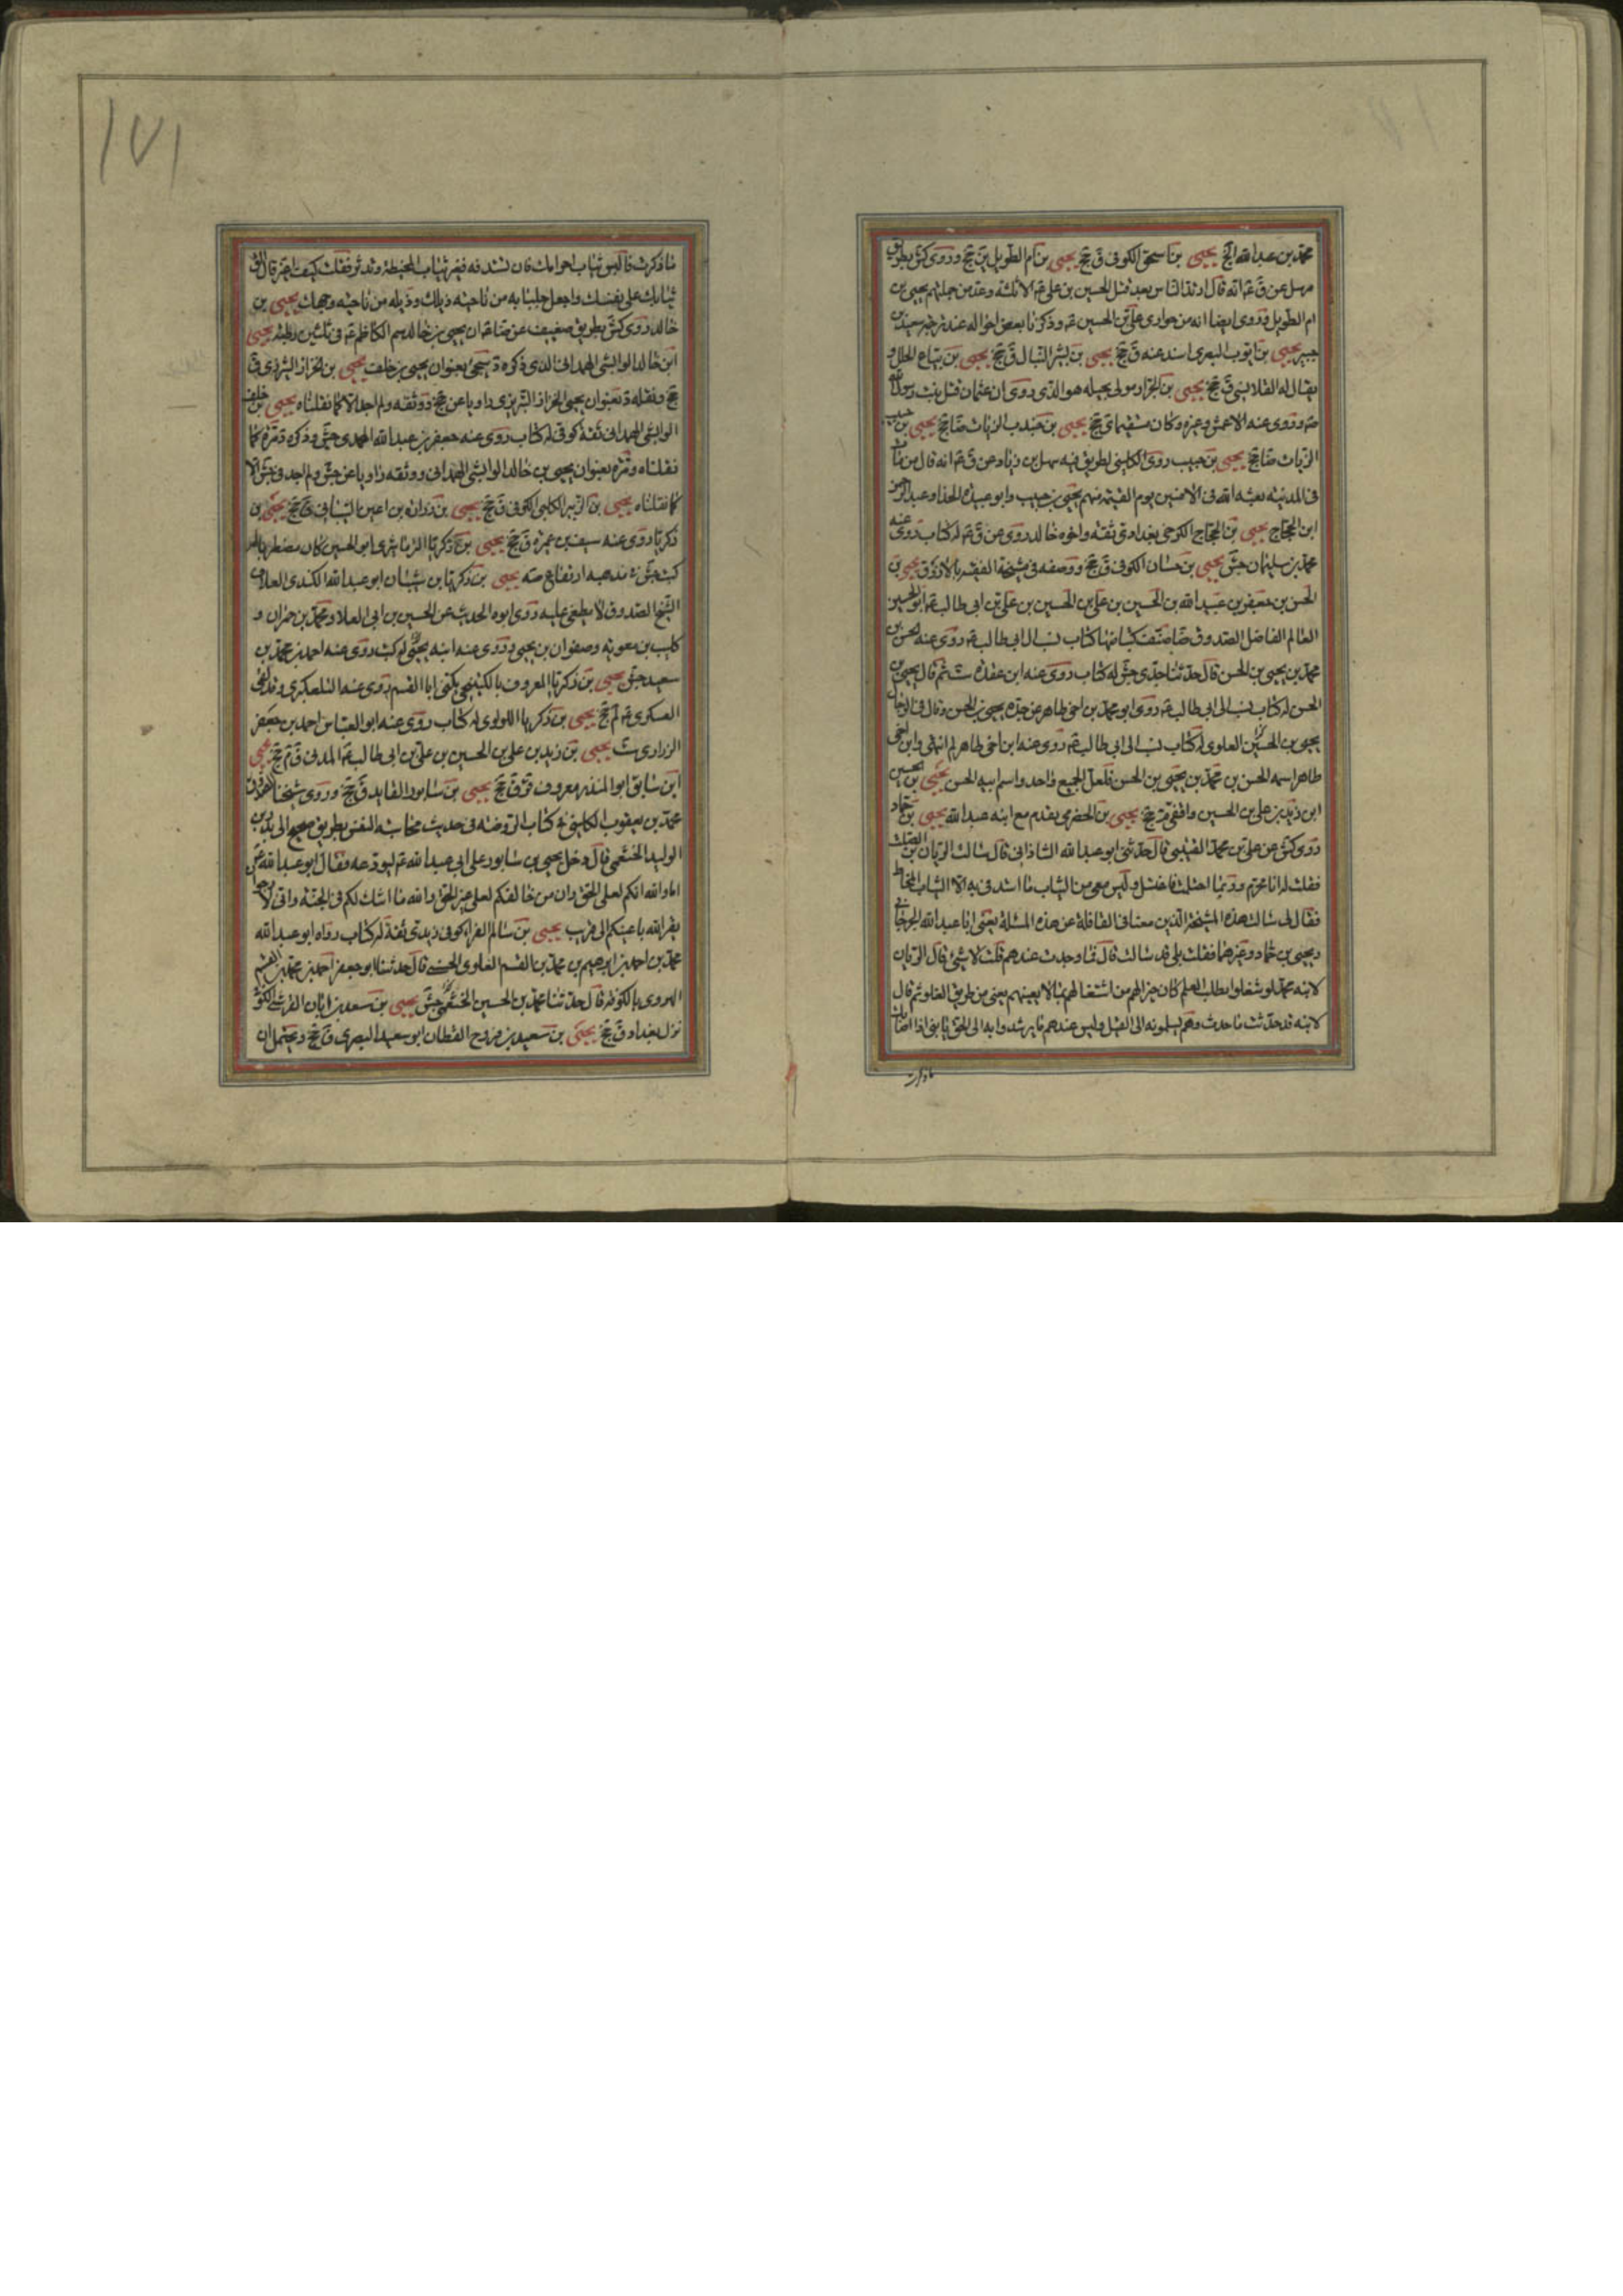 محمد بن عبد الله الخ يحيى بن اسحق الكوفى ق جخ يحيى بن ام الطويل ين جخ وروى كش بطريق
مرسل عن ق عم انه قال ارتد الناس بعد قتل الحسين بن على عم الا ثلثة وعد من جملتهم يحيى بن
ام الطويل وروى ايضا انه من حوارى على بن الحسين عم وذكرنا بعض احواله عند ترجمة سعيد بن
جبير يحيى بن ايوب البصرى اسند عنه ق جخ يحيى بن بشر النبال ق جخ يحيى بن بياع الحلل و
يقال له القلانسى ق جخ يحيى بن الجزار مولى بجيله هو الذى روى ان عثمان قتل بنت رسول الله
صم وروى عنه الاعمش وغيره وكان مستقيما ى جخ يحيى بن جندب الزيات ضا جخ يحيى بن حبيب
الزيات ضا جخ يحيى بن حبيب روى الكلينى بطريق فيه سهل بن زياد عن ق عم انه قال من مات
فى المدينه بعثه الله فى الامنين يوم القيمة منهم يحيى بن حبيب وابو عبيدة الحذا وعبد الرحمن
ابن الحجاج يحيى بن الحجاج الكرخى بغدادى ثقه واخوه خالد روى عن ق عم له كتاب روى عنه
محمد بن سليمان جش يحيى بن حسان الكوفى ق جخ ووصفه فى مشيخة الفقيه بالازرق يحيى بن
الحسن بن جعفر بن عبيد الله بن الحسين بن على بن الحسين بن على بن ابى طالب عم ابو الحسين
العالم الفاضل الصدوق ضا صنف كتبا منها كتاب نسب ال ابى طالب عم روى عنه الحسن بن
محمد بن يحيى بن الحسن قال حدثنا جدى جش له كتاب روى عنه ابن عقدة ست ثم قال يحيى بن
الحسن له كتاب نسب ال ابى طالب عم روى ابو محمد بن اخى طاهر عن جده يحيى بن الحسن وقال فى الرجال
يحيى بن الحسين العلوى له كتاب نسب ال ابى طالب عم روى عنه ابن اخى طاهر لم انتهى وابن اخى
طاهر اسمه الحسن بن محمد بن يحيى بن الحسن فلعل الجميع واحد واسم ابيه الحسن يحيى بن الحسين
ابن زيد بن على بن الحسين واقفى م جخ يحيى بن الحضرمى يقدم مع ابنه عبد الله يحيى بن حماد
روى كش عن على بن محمد القتيبى قال حدثنى ابو عبد الله الشاذانى قال سالت الريان بن الصلت
فقلت له انا محرم وربما احتلمت فاغتسل وليس معى من الثياب ما استدفى به الا الثياب المخاط
فقال لى سالت هذه المشيخة الذين معنا فى القافلة عن هذه المسئلة يعنى ابا عبد الله الجرجانى
ويحيى بن حماد وغيرهما فقلت بلى قد سالت قال فما وجدت عندهم قلت لا شئ قال الريان
لابنه محمد لو شغلوا بطلب العلم كان خيرا لهم من اشتغالهم بما لا يعنيهم يعنى من طريق الغلو ثم قال
لابنه قد حدثت ما حدث وهم يسلمونه الى القيل وليس عندهم ما يرشدوا به الى الحق يا بنى اذا اصابك
ما ذكرت
١٧١
ما ذكرت فالبس ثياب احرامك فان لم تستدفه فغير ثيابك المخيطة وتدثر فقلت كيف اغير قال الق
ثيابك على نفسك واجعل جلبابه من ناحية ذيلك وذيله من ناحيه وجهك يحيى بن
خالد روى كش بطريق ضعيف عن ضا عم ان يحيى بن خالد سم الكاظم عم فى ثلثين رطبة يحيى
ابن خالد الوابشى الهمدانى الذى ذكره د سيجئ بعنوان يحيى بن خلف يحيى بن الخزاز التبريزى ق
جخ ونقله د بعنوان يحيى الخزاز التبريزى راويا عن جخ ووثقه ولم اجد الا كما نقلناه يحيى بن خلف
الوابشى الهمدانى ثقة كوفى له كتاب روى عنه جعفر بن عبد الله المحمدى جش وذكره د مرة كما
نقلناه ومرة بعنوان يحيى بن خالد الوابشى الهمدانى ووثقه راويا عن جش ولم اجد فى جش الا
كما نقلناه يحيى بن الزبير الكلبى الكوفى ق جخ يحيى بن زرارة بن اعين الشيبانى ق جخ يحيى بن
زكريا روى عنه سيف بن عميرة ق جخ يحيى بن زكريا الترماشيرى ابو الحسين كان مضطربا له
كتب جش فى مذهبه ارتفاع صه يحيى بن زكريا بن شيبان ابو عبد الله الكندى العلاف
الشيخ الصدوق لا يطعن عليه روى ابوه الحديث عن الحسين بن ابى العلا ومحمد بن حمران و
كليب بن معويه وصفوان بن يحيى وروى عنه ابنه يحيى له كتب روى عنه احمد بن محمد بن
سعيد جش يحيى بن زكريا المعروف بالكتنجى يكنى ابا القسم روى عنه التلعكبرى وقد لقى
العسكرى عم لم جخ يحيى بن زكريا اللولوى له كتاب روى عنه ابو العباس احمد بن جعفر
الزرارى ست يحيى بن زيد بن على بن الحسين بن على بن ابى طالب عم المدنى ق م جخ يحيى
ابن سابق ابو المنذر معروف ق ق جخ يحيى بن سابور القايد ق جخ وروى شيخنا الصدوق
محمد بن يعقوب الكلينى فى كتاب الروضه فى حديث محاسبه النفس بطريق صحيح الى بدر بن
الوليد الخثعمى قال دخل يحيى بن سابور على ابى عبد الله عم ليودعه فقال ابو عبد الله عم
اما والله انكم لعلى الحق وان من خالفكم لعلى غير الحق والله ما اشك لكم فى الجنة وانى لارجو
يقر الله باعينكم الى قريب يحيى بن سالم الفراء كوفى زيدى ثقة له كتاب رواه ابو عبد الله
محمد بن احمد بن ابرهيم بن محمد بن القسم العلوى الحسنى قال حدثنا ابو جعفر احمد بن محمد بن القسم
الهروى بالكوفة قال حدثنا محمد بن الحسين الخثعمى جش يحيى بن سعد بن ابان القرشى الكوفى
نزل بغداد ق جخ يحيى بن سعيد بن فروخ القطان ابو سعيد البصرى ق جخ ويحتمل ان